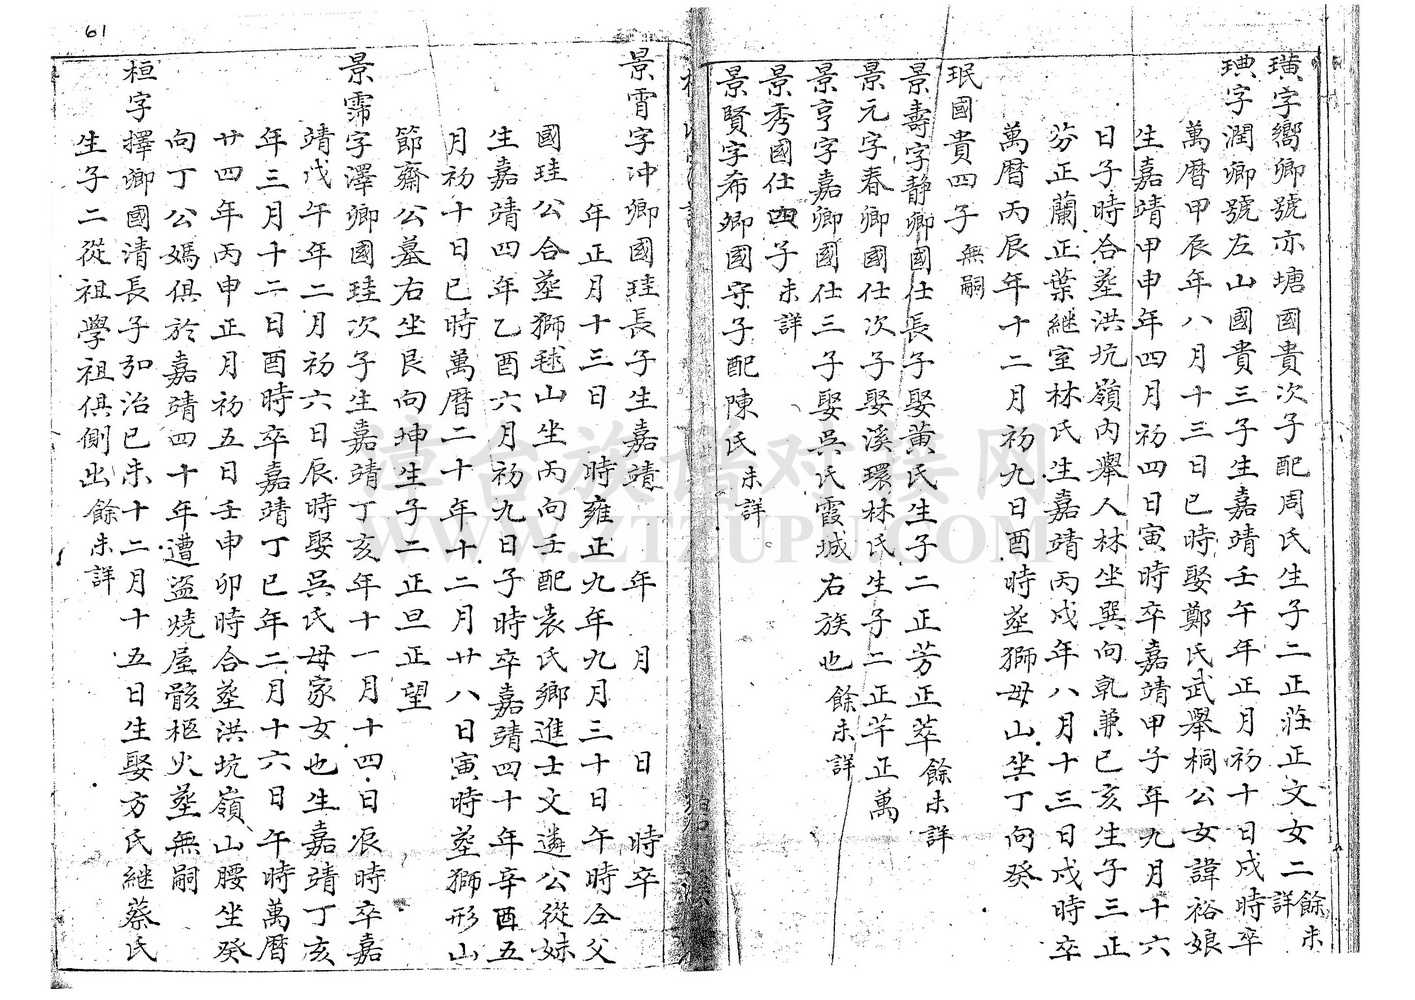 璜字嚮卿號亦塘國貴次子配周氏生子二正莊正文女二餘未詳
璵字潤卿號左山國貴三子生嘉靖壬午年正月初十日戌時卒
萬曆甲辰年八月十三日巳時娶鄭氏武舉桐公女諱裕娘
生嘉靖甲申年四月初四日寅時卒嘉靖甲子年九月十六
日子時合塟洪坑嶺內舉人林坐巽向乹兼巳亥生子三正
芬正蘭正葉継室林氏生嘉靖丙戌年八月十三日戌時卒
萬曆丙辰年十二月初九日酉時塟獅母山坐丁向癸
珉國貴四子無嗣
景壽字靜卿國仕長子娶黃氏生子二正芳正萃餘未詳
景元字春卿國仕次子娶溪環林氏生子二正芊正萬
景亨字嘉卿國仕三子娶吳氏霞城右族也餘未詳
景秀國仕四子未詳
景賢字希卿國守子配陳氏未詳
景霄字冲卿國珪長子生嘉靖 年 月 日 時卒
年正月十三日 時雍正九年九月三十日午時仝父
國珪公合塟獅毬山坐丙向壬配袁氏鄉進士文遴公從妹
生嘉靖四年乙酉六月初九日子時卒嘉靖四十年辛酉五
月初十日巳時萬曆二十年十二月廿八日寅時塟獅形山
節齋公墓右坐艮向坤生子二正旦正望
景霈字澤卿國珪次子生嘉靖丁亥年十一月十四日辰時卒嘉
靖戊午年二月初六日辰時娶吳氏母家女也生嘉靖丁亥
年三月十二日酉時卒嘉靖丁巳年二月十六日午時萬曆
廿四年丙申正月初五日壬申卯時合塟洪坑嶺山腰坐癸
向丁公媽俱於嘉靖四十年遭盜燒屋骸柩火塟無嗣
桓字擇卿國清長子弘治巳未十二月十五日生娶方氏継蔡氏
生子二從祖學祖俱側出餘未詳
61
漳台族谱对接网
WWW.ZTZUPU.COM